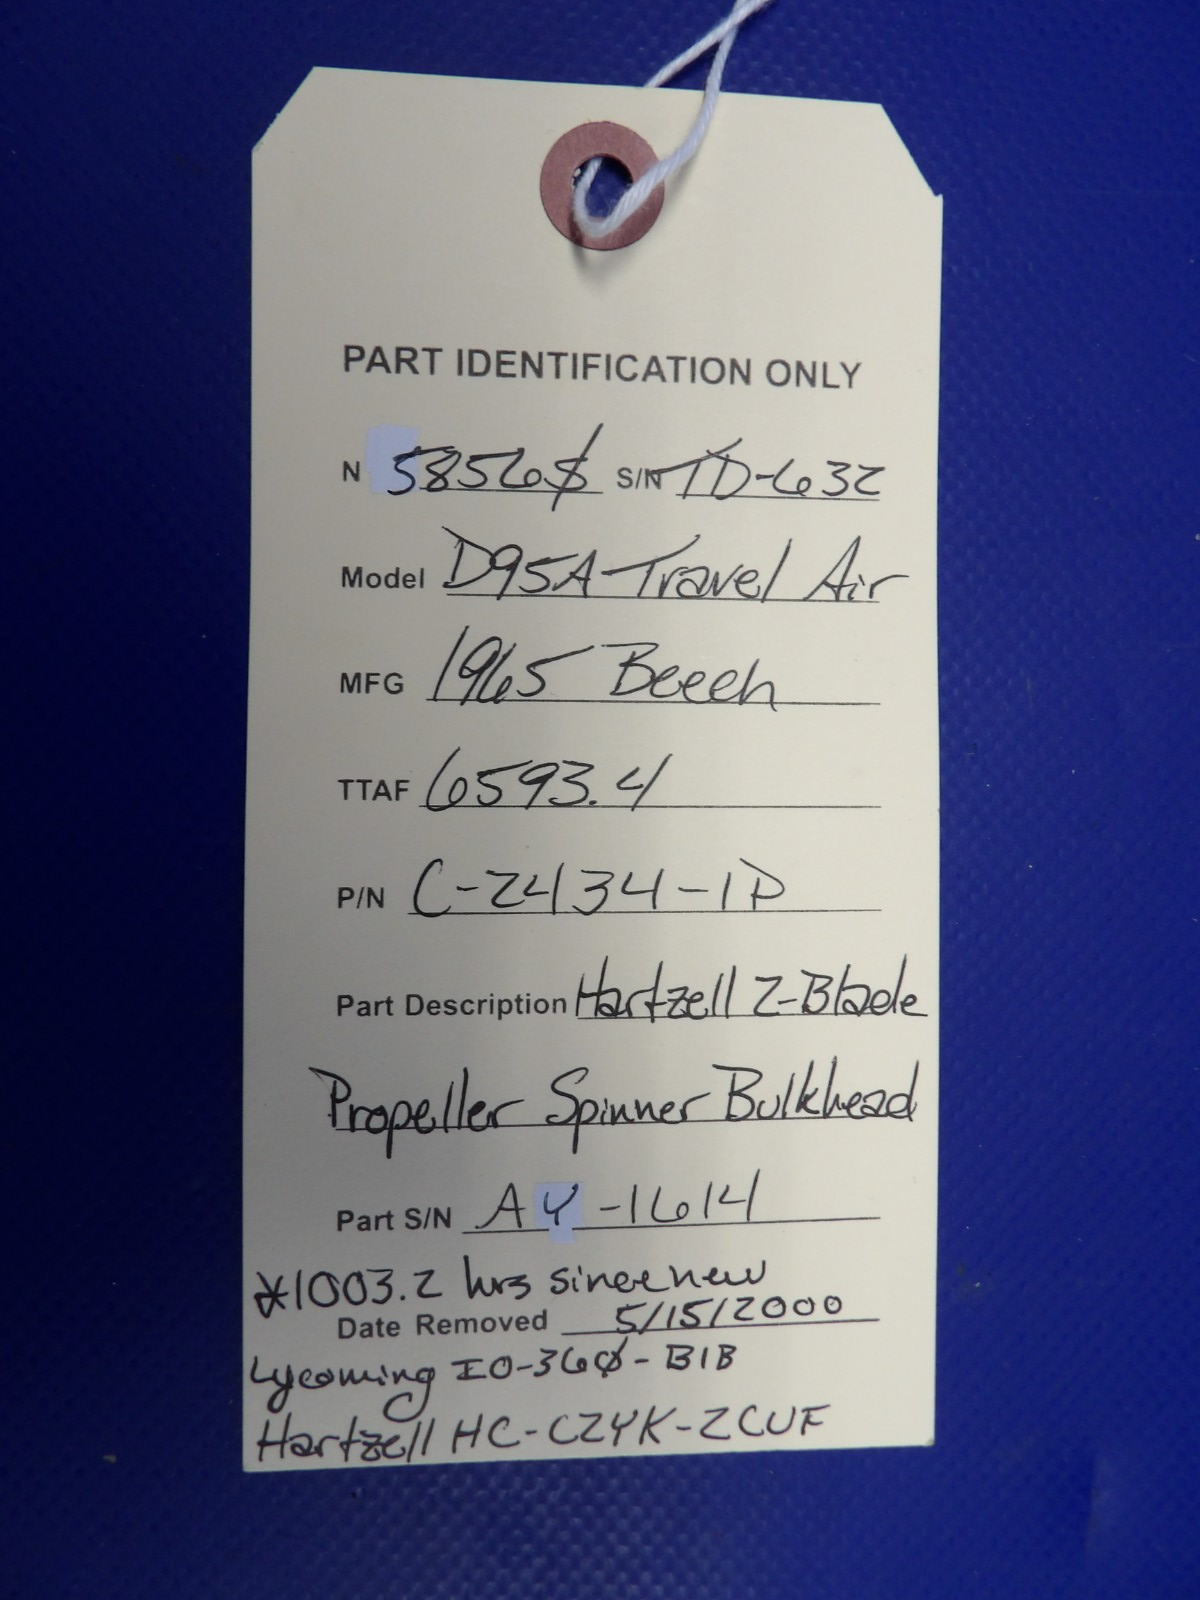 PART IDENTIFICATION ONLY
N 5856Ø S/N TD-632
Model D95A-Travel Air
MFG 1965 Beech
TTAF 6593.4
P/N C-2434-1P
Part Description Hartzell 2-Blade
Propeller Spinner Bulkhead
Part S/N AY-1614
*1003.2 hrs since new
Date Removed 5/15/2000
Lycoming IO-36Ø-B1B
Hartzell HC-C2YK-2CUF